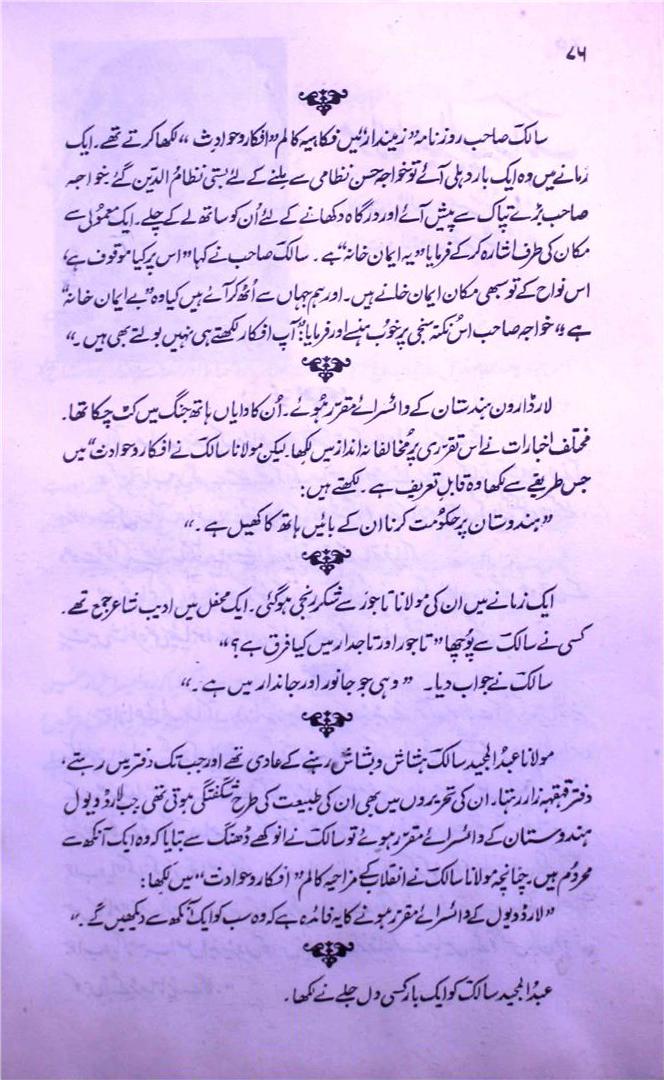 ۷۶
سالکؔ صاحب روزنامہ ”زمیندار“ میں فکاہیہ کالم ”افکار و حوادث“ لکھا کرتے تھے۔ ایک
زمانے میں وہ ایک بار دہلی آئے تو خواجہ حسن نظامی سے ملنے کے لئے بستی نظام الدین گئے۔ خواجہ
صاحب بڑے تپاک سے پیش آئے اور درگاہ دکھانے کے لئے اُن کو ساتھ لے کے چلے۔ ایک معمولی سے
مکان کی طرف اشارہ کر کے فرمایا ”یہ ایمان خانہ“ ہے۔ سالکؔ صاحب نے کہا ”اس پر کیا موقوف ہے،
اس نواح کے تو سبھی مکان ایمان خانے ہیں۔ اور ہم جہاں سے اُٹھ کر آئے ہیں کیا وہ ”بے ایمان خانہ“
ہے“ خواجہ صاحب اس نکتہ سنجی پر خوب ہنسے اور فرمایا: ”آپ افکار لکھتے ہی نہیں بولتے بھی ہیں۔“
لارڈ ارون ہندستان کے وائسرائے مقرر ہوئے۔ اُن کا دایاں ہاتھ جنگ میں کٹ چکا تھا۔
مختلف اخبارات نے اس تقرری پر مخالفانہ انداز میں لکھا۔ لیکن مولانا سالکؔ نے افکار و حوادث“ میں
جس طریقے سے لکھا وہ قابلِ تعریف ہے۔ لکھتے ہیں:
”ہندوستان پر حکومت کرنا ان کے بائیں ہاتھ کا کھیل ہے۔“
ایک زمانے میں ان کی مولانا تاجور سے شکر رنجی ہو گئی۔ ایک محفل میں ادیب شاعر جمع تھے۔
کسی نے سالکؔ سے پوچھا ”تاجور اور تاجدار میں کیا فرق ہے؟“
سالکؔ نے جواب دیا۔ ”وہی جو جانور اور جاندار میں ہے۔“
مولانا عبدالمجید سالکؔ ہشاش و بشاش رہنے کے عادی تھے اور جب تک دفتر میں رہتے،
دفتر قہقہہ زار رہتا۔ ان کی تحریروں میں بھی ان کی طبیعت کی طرح شگفتگی ہوتی تھی جب لارڈ ویول
ہندوستان کے وائسرائے مقرر ہوئے تو سالکؔ نے انوکھے ڈھنگ سے بتایا کہ وہ ایک آنکھ سے
محروم ہیں۔ چنانچہ مولانا سالکؔ نے انقلاب کے مزاحیہ کالم ”افکار و حوادث“ میں لکھا:
”لارڈ ویول کے وائسرائے مقرر ہونے کا یہ فائدہ ہے کہ وہ سب کو ایک آنکھ سے دیکھیں گے۔“
عبدالمجید سالکؔ کو ایک بار کسی دل جلے نے لکھا۔